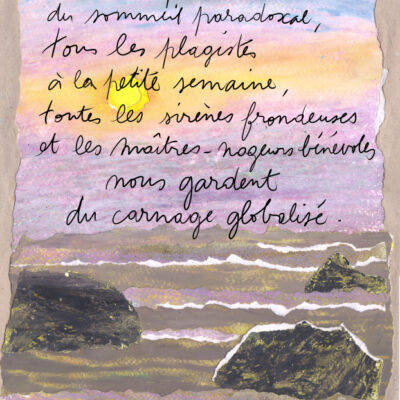 du sommeil paradoxal,
tous les plagistes
à la petite semaine,
toutes les sirènes frondeuses
et les maîtres-nageurs bénévoles
nous gardent
du carnage globalisé.